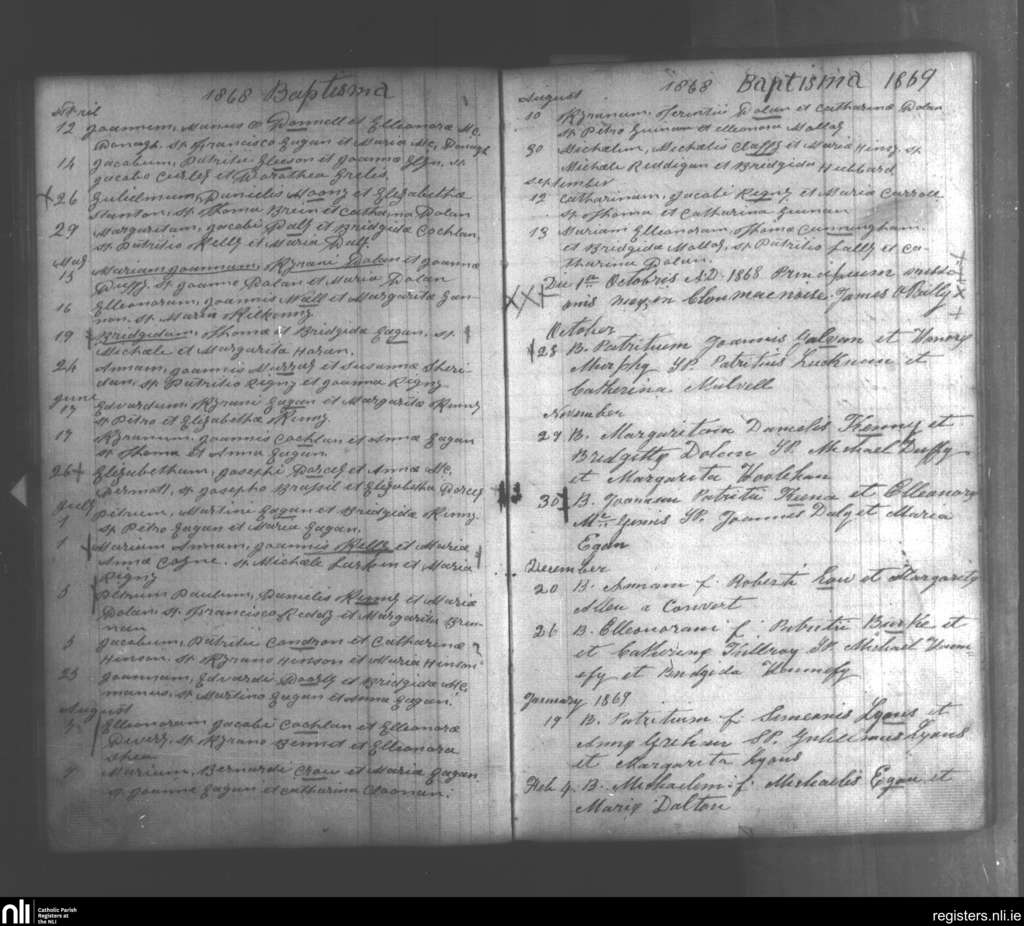 1868 Baptisma
April
12 Joannem, Manus O Donnell et Elleonora Mc.
Donagh. Sp. Francisco Eagan et Maria Mc. Donagh
14 Jacobum, Patritii Gleeson et Joannæ Flyn. Sp
Jacobo Curley et Dorothea
26 Gulielmum, Danielis Moony et Elizabethæ
Stanton. Sp. Thoma Brein et Catharina Dolan
29 Margaritam, Jacobi Daly et Bridgida Cochlan,
Sp. Patritio Kelly et Maria Daly
May
15 Mariam Joannam, Kyrani Dolan et Joanna
Duffy. Sp. Joanne Dolan et Maria Dolan
16 Elleonoram, Joannis Mall et Margarita
Sp. Maria Kilkenny
19 Bridgidam, Thomæ et Bridgida Eagan. Sp.
Michæle et Margarita Horan.
24 Annam, Joannis Murray et Susanna Sheri
dan. Sp. Patritio Rigny et Joanna Rigny
June
17 Edvardum, Kyrani Eagan et Margarita Kenny
Sp. Petro et Elizabetha Kenny.
17 Kyranum, Joannis Cochlan et Anna Eagan
Sp. Thoma et Anna Eagan.
26 Elizabetham, Josephi Darcey et Annæ Mc.
Dermott. Sp. Josepho Brassil et Elizabetha Darcey
July
1 Petrum, Martini Eagan et Bridgida Kenny.
Sp. Petro Eagan et Maria Eagan.
1 Mariam Annam, Joannis Kelly et Maria
Anna Coyne. Sp. Michæle Larkin et Maria
Rigny
5 Petrum Paulum, Danielis Kenny et Mariæ
Dolan. Sp. Francisco Reddy et Margarita Bren
nan
5 Jacobum, Patritii Condron et Catharinæ
Henson. Sp. Kyrano Henson et Maria Henson
25 Joannam, Edvardi Doorly et Bridgida Mc.
manus. Sp. Martino Eagan et Anna Eagan.
August
Elleonoram Jacobi Cochlan et Elleonora
Devery. Sp. Kyrano et Elleonora
Shea
9 Mariam, Bernardi Crow et Maria Eagan
Sp. Joanne Eagan et Catharina Cloonan.
1868 Baptisma 1869
August
10 Kyranum, Terentii Dolan et Catharinæ Dolan
Sp. Petro Guinan et Elleonora Molloy
30 Michælem, Michælis Claffy et Maria Heny. Sp.
Michæle Reddigan et Bridgida Hubbard
September
12 Catharinam, Jacobi Rigny et Maria Carroll
Sp. Thoma et Catharina Guinan
13 Mariam Elleonoram, Thomæ Cunningham
et Bridgida Molloy, Sp. Patritio Lally et Ca-
tharina Dolan.
Die 1ma Octobris A.D. 1868 Principium missi
onis meæ, in Cloumacnoise. James O'Reilly
October
28 B. Patritium Joannis Galvan et Honory
Murphy SP. Patritius et
Catherina Mulvell
November
29 B. Margaritam Danielis Kenny et
Bridgitty Dolan SP. Michael Duffy
et Margarita Hoolehan
30 B. Joannam Patritii Keena et Elleonory
Mc. Ginnis SP. Joannes Daly et Maria
Egan
December
20 B. Annam f. Roberti Low et Margarity
Allen a Convert
26 B. Elleonoram f. Patritii Burke et
et Catheriny Killroy SP. Michael Henn=
efy et Bridgida Hennefy
January 1869
19 B. Patritium f. Simeonis Lyons et
Anny Grehan SP. Gulielmus Lyons
et Margarita Lyons
Feb 4. B. Michaelem f. Michaelis Egan et
Mariy Dalton
nli
Catholic Parish
Registers at
the NLI
registers.nli.ie